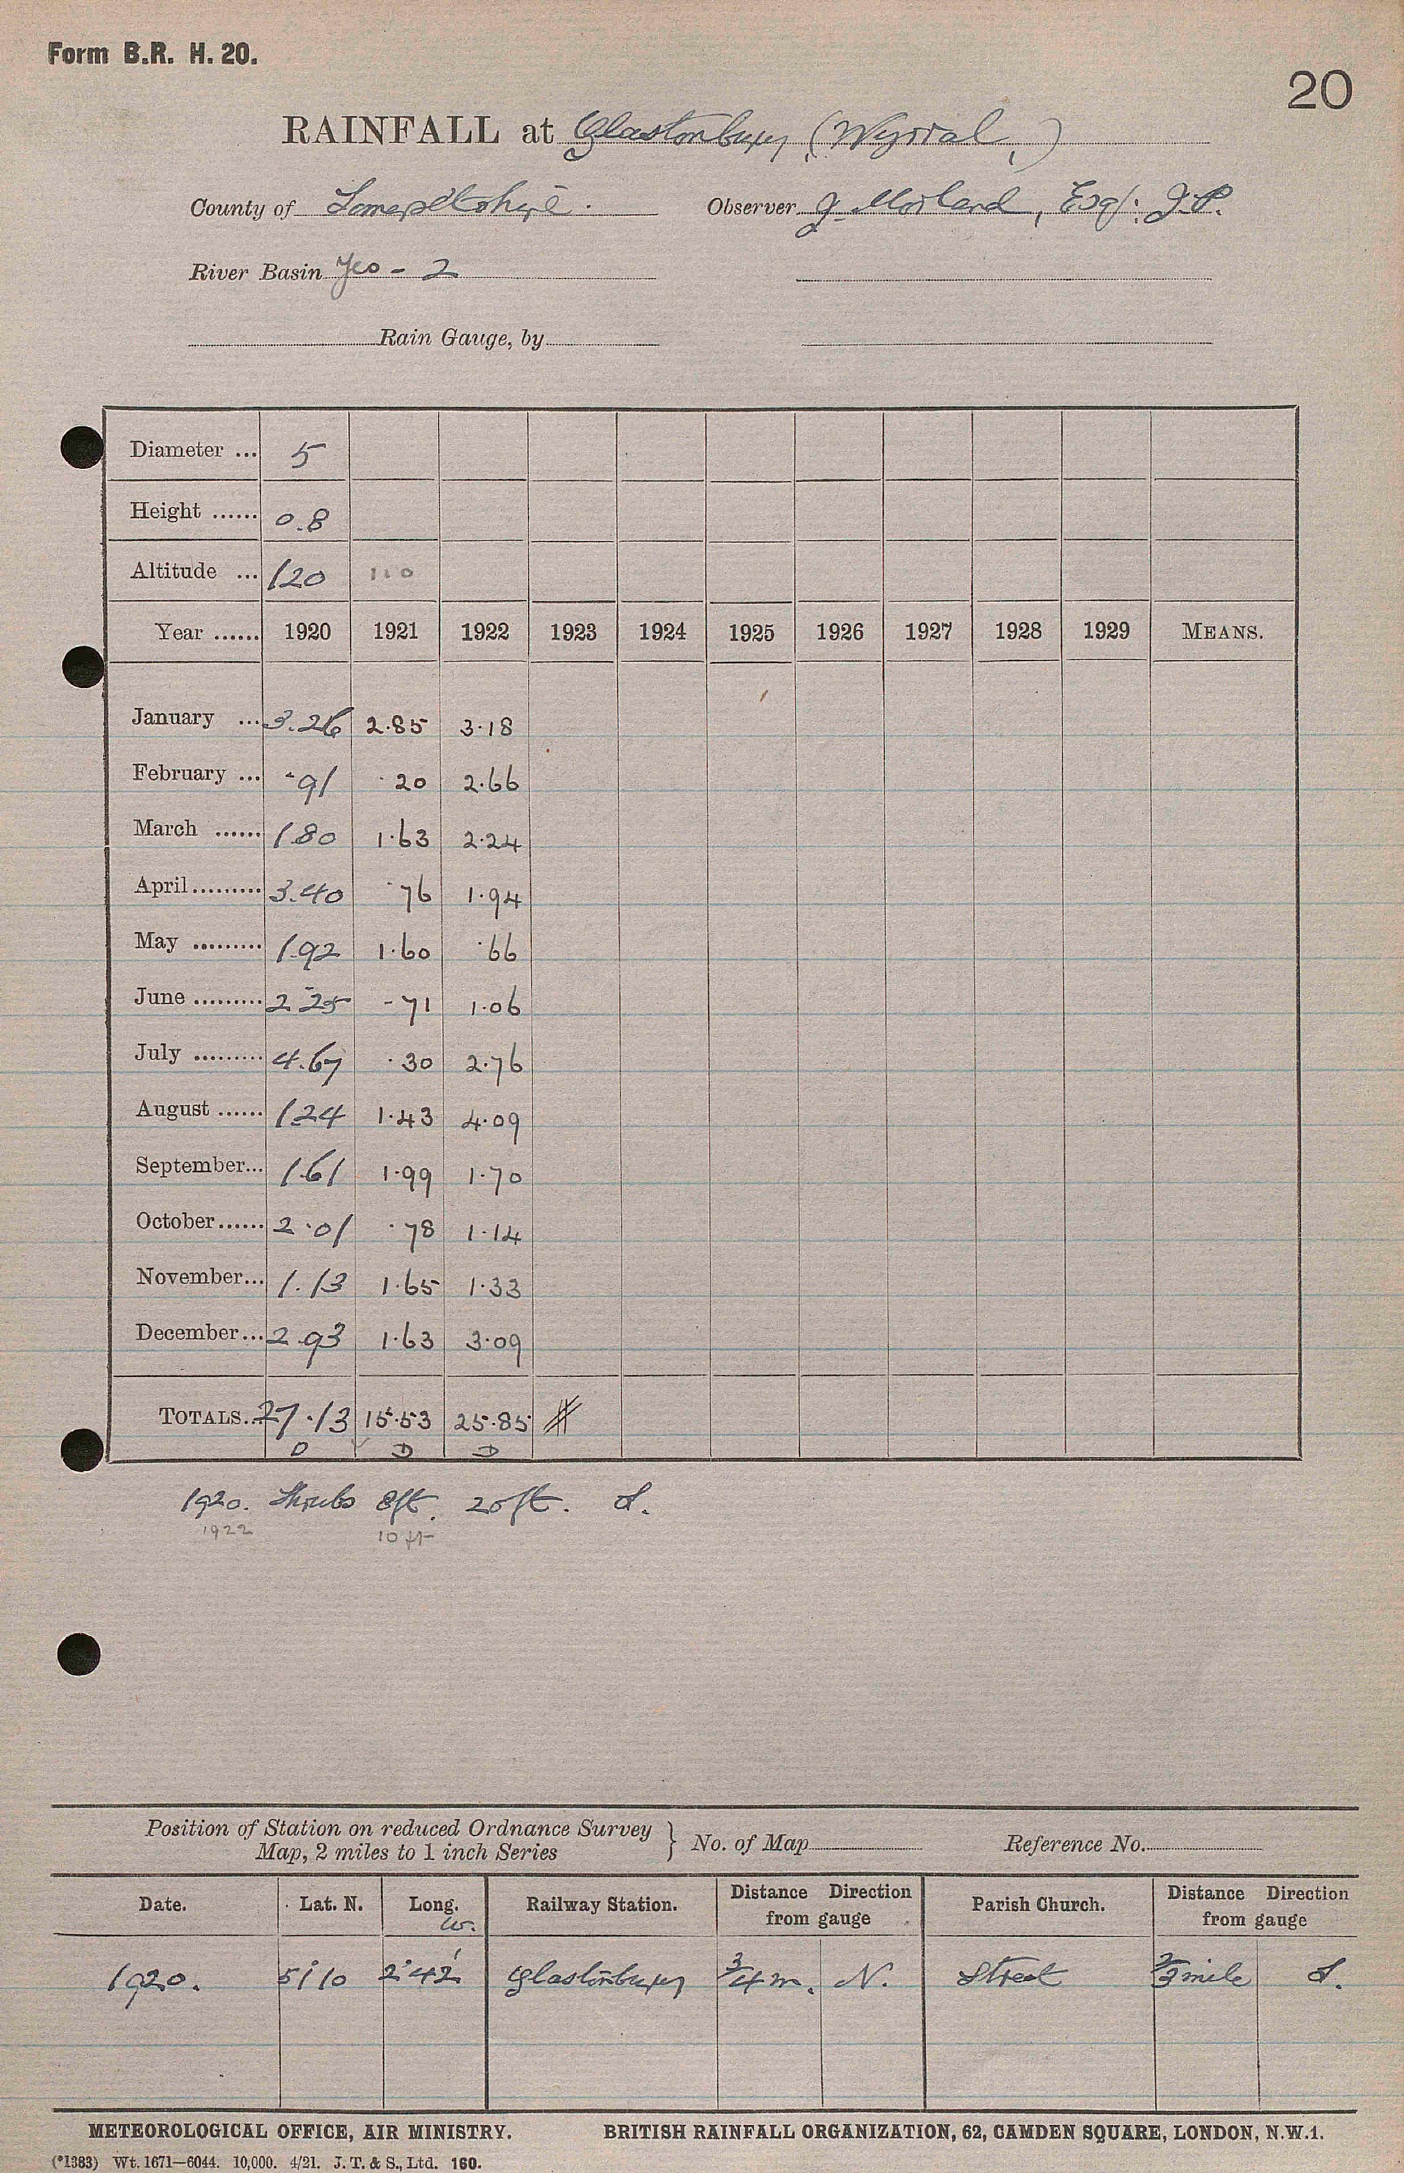 Form B.R. H. 20.
20
RAINFALL at Glastonbury (Wyrral)
County of Somersetshire. Observer J. Morland, Esq. J.P.
River Basin Yeo - 2
Rain Gauge, by
Diameter ... 5
Height ...... 0.8
Altitude ... 120 110
Year ...... 1920 1921 1922 1923 1924 1925 1926 1927 1928 1929 MEANS.
January ... 3.26 2.85 3.18
February ... .91 .20 2.66
March ...... 1.80 1.63 2.24
April ......... 3.40 .76 1.94
May ......... 1.92 1.60 .66
June ......... 2.25 .71 1.06
July ......... 4.67 .30 2.76
August ...... 1.24 1.43 4.09
September... 1.61 1.99 1.70
October...... 2.01 .78 1.14
November... 1.13 1.65 1.33
December... 2.93 1.63 3.09
TOTALS.. 27.13 15.53 25.85 #
D D D
1920. Shrubs 8ft. 20ft. S.
1922 10 ft
Position of Station on reduced Ordnance Survey
Map, 2 miles to 1 inch Series } No. of Map Reference No.
Date. Lat. N. Long. W. Railway Station. Distance Direction from gauge Parish Church. Distance Direction from gauge
1920. 51°10 2°42' Glastonbury 3/4 m. N. Street 2/3 mile S.
METEOROLOGICAL OFFICE, AIR MINISTRY. BRITISH RAINFALL ORGANIZATION, 62, CAMDEN SQUARE, LONDON, N.W.1.
(*1383) Wt. 1671—6044. 10,000. 4/21. J. T. & S., Ltd. 160.